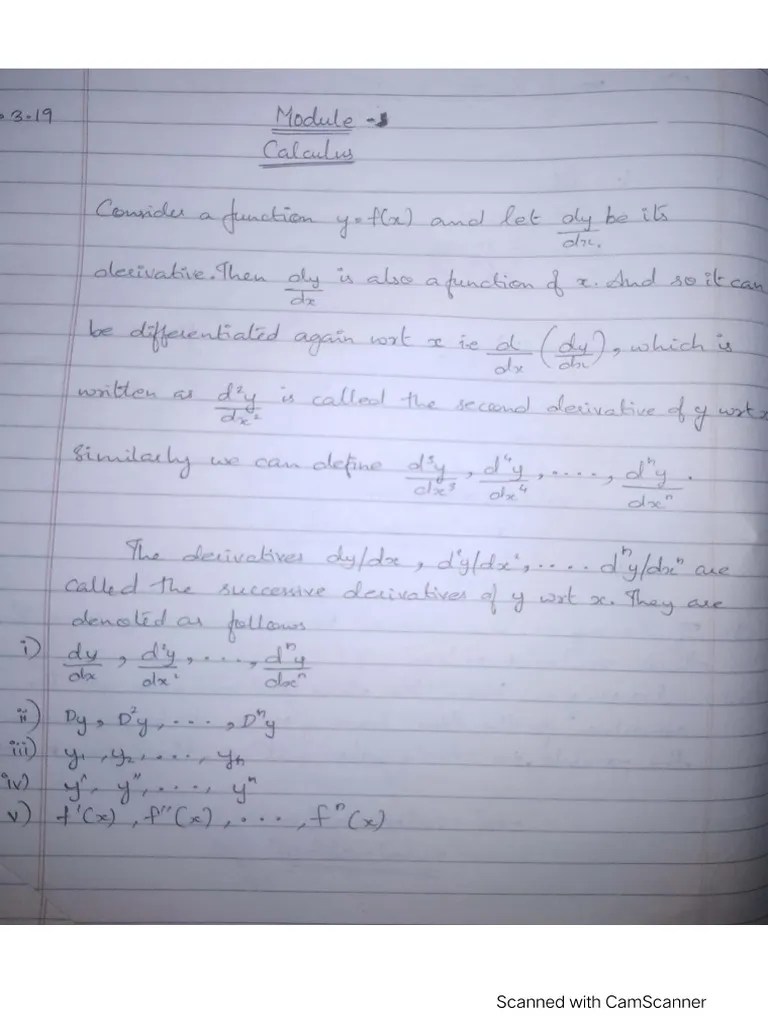 3-19
Module -
Calculus
Consider a function y=f(x) and let dy/dx be its
derivative. Then dy/dx is also a function of x. And so it can
be differentiated again wrt x ie d/dx (dy/dx), which is
written as d²y/dx² is called the second derivative of y wrt x
Similarly we can define d³y/dx³, d⁴y/dx⁴, ...., dⁿy/dxⁿ.
The derivatives dy/dx, d²y/dx², .... dⁿy/dxⁿ are
called the successive derivatives of y wrt x. They are
denoted as follows
i) dy/dx, d²y/dx², ...., dⁿy/dxⁿ
ii) Dy, D²y, ...., Dⁿy
iii) y₁, y₂, ...., yₙ
iv) y', y'', ...., yⁿ
v) f'(x), f''(x), ...., fⁿ(x)
Scanned with CamScanner